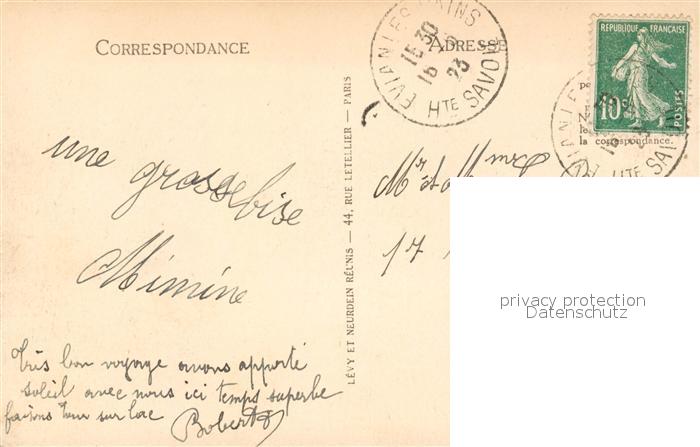 CORRESPONDANCE
ADRESSE
EVIAN LES BAINS
15 30
16
23
HTE SAVOIE
REPUBLIQUE FRANÇAISE
10c
POSTES
la correspondance.
une grosse bise
Mimine
Très bon voyage avons apporté
soleil avec nous ici temps superbe
faisons tour sur lac
LÉVY ET NEURDEIN RÉUNIS — 44, RUE LETELLIER — PARIS
Mr et Mme
17
privacy protection
Datenschutz